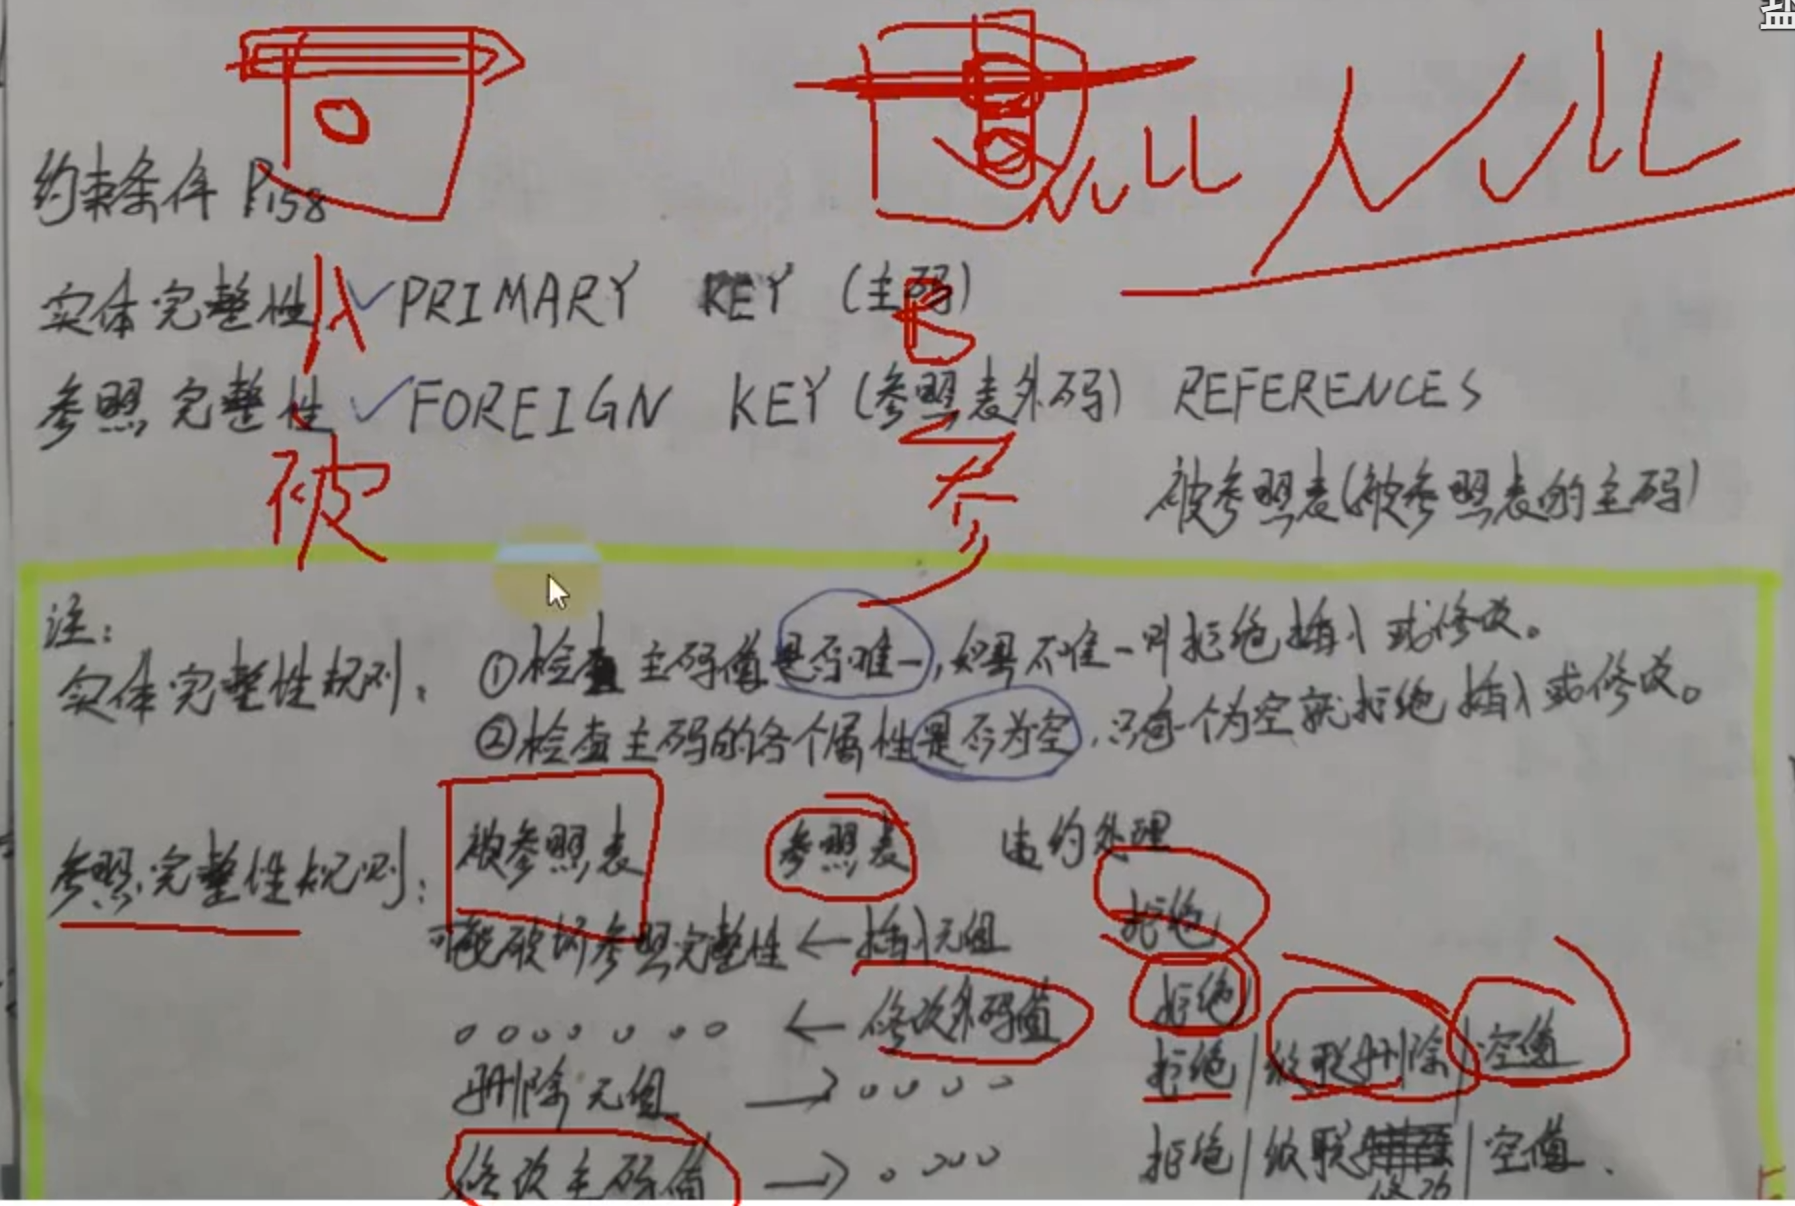 盐
NULL NULL
约束条件 P158
A B
实体完整性 ✓ PRIMARY KEY (主码)
参照完整性 ✓ FOREIGN KEY (参照表外码) REFERENCES
被 参
被参照表(被参照表的主码)
注:
实体完整性规则: ①检查主码值是否唯一,如果不唯一则拒绝插入或修改。
②检查主码的各个属性是否为空,只有一个为空就拒绝插入或修改。
参照完整性规则: 被参照表 参照表 违约处理
可能破坏参照完整性 ← 插入元组 拒绝
。。。。。。。 ← 修改外码值 拒绝
删除元组 → 。。。。 拒绝|级联删除|空值
修改主码值 → 。。。。 拒绝|级联修改|空值.